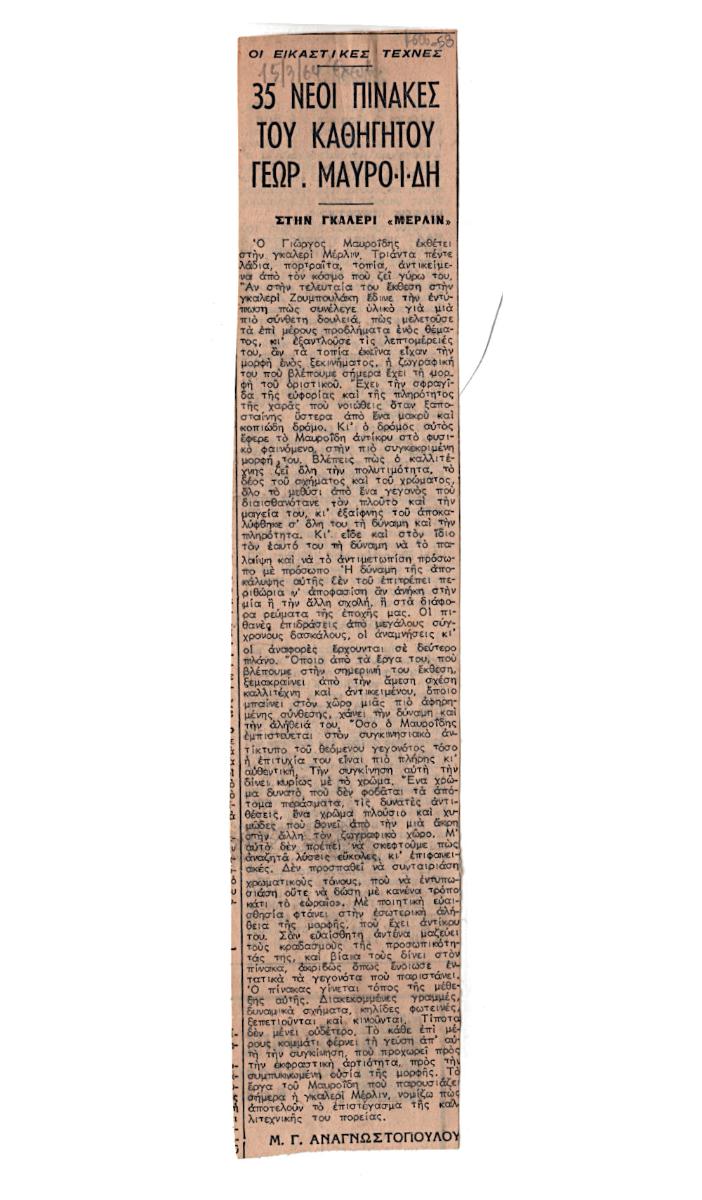 ΟΙ ΕΙΚΑΣΤΙΚΕΣ ΤΕΧΝΕΣ
15/3/64
35 ΝΕΟΙ ΠΙΝΑΚΕΣ
ΤΟΥ ΚΑΘΗΓΗΤΟΥ
ΓΕΩΡ. ΜΑΥΡΟ·Ι·ΔΗ
ΣΤΗΝ ΓΚΑΛΕΡΙ «ΜΕΡΛΙΝ»
Ὁ Γιῶργος Μαυροΐδης ἐκθέτει
στὴν γκαλερὶ Μέρλιν. Τριάντα πέντε
λάδια, πορτραῖτα, τοπία, ἀντικείμε-
να ἀπὸ τὸν κόσμο ποὺ ζεῖ γύρω του.
Ἂν στὴν τελευταία του ἔκθεση στὴν
γκαλερὶ Ζουμπουλάκη ἔδινε τὴν ἐντύ-
πωση πὼς συνέλεγε ὑλικὸ γιὰ μιὰ
πιὸ σύνθετη δουλειά, πὼς μελετοῦσε
τὰ ἐπὶ μέρους προβλήματα ἑνὸς θέμα-
τος, κι' ἐξαντλοῦσε τὶς λεπτομέρειές
του, ἂν τὰ τοπία ἐκεῖνα εἶχαν τὴν
μορφὴ ἑνὸς ξεκινήματος, ἡ ζωγραφική
του ποὺ βλέπουμε σήμερα ἔχει τὴ μορ-
φὴ τοῦ ὁριστικοῦ. Ἔχει τὴν σφραγῖ-
δα τῆς εὐφορίας καὶ τῆς πληρότητος
τῆς χαρᾶς ποὺ νοιώθεις ὅταν ξαπο-
σταίνης ὕστερα ἀπὸ ἕνα μακρὺ καὶ
κοπιώδη δρόμο. Κι' ὁ δρόμος αὐτὸς
ἔφερε τὸ Μαυροΐδη ἀντίκρυ στὸ φυσι-
κὸ φαινόμενο, στὴν πιὸ συγκεκριμένη
μορφή του. Βλέπεις πὼς ὁ καλλιτέ-
χνης ζεῖ ὅλη τὴν πολυτιμότητα, τὸ
δέος τοῦ σχήματος καὶ τοῦ χρώματος,
ὅλο τὸ μεθύσι ἀπὸ ἕνα γεγονὸς ποὺ
διαισθανότανε τὸν πλοῦτο καὶ τὴν
μαγεία του, κι' ἐξαίφνης τοῦ ἀποκα-
λύφθηκε σ' ὅλη του τὴ δύναμη καὶ τὴν
πληρότητα. Κι' εἶδε καὶ στὸν ἴδιο
τὸν ἑαυτό του τὴ δύναμη νὰ τὸ πα-
λαίψη καὶ νὰ τὸ ἀντιμετωπίση πρόσω-
πο μὲ πρόσωπο Ἡ δύναμη τῆς ἀπο-
κάλυψης αὐτῆς δὲν τοῦ ἐπιτρέπει πε-
ριθώρια ν' ἀποφασίση ἂν ἀνήκη στὴν
μία ἢ τὴν ἄλλη σχολή, ἢ στὰ διάφο-
ρα ρεύματα τῆς ἐποχῆς μας. Οἱ πι-
θανὲς ἐπιδράσεις ἀπὸ μεγάλους συγ-
χρόνους δασκάλους, οἱ ἀναμνήσεις κι'
οἱ ἀναφορὲς ἔρχουνται σὲ δεύτερο
πλάνο. Ὅποιο ἀπὸ τὰ ἔργα του, ποὺ
βλέπουμε στὴν σημερινή του ἔκθεση,
ξεμακραίνει ἀπὸ τὴν ἄμεση σχέση
καλλιτέχνη καὶ ἀντικειμένου, ὅποιο
μπαίνει στὸν χῶρο μιᾶς πιὸ ἀφηρη-
μένης σύνθεσης, χάνει τὴν δύναμη καὶ
τὴν ἀλήθειά του. Ὅσο ὁ Μαυροΐδης
ἐμπιστεύεται στὸν συγκινησιακὸ ἀν-
τίκτυπο τοῦ θεόμενου γεγονότος τόσο
ἡ ἐπιτυχία του εἶναι πιὸ πλήρης κι'
αὐθεντική. Τὴν συγκίνηση αὐτὴ τὴν
δίνει κυρίως μὲ τὸ χρῶμα. Ἕνα χρῶ-
μα δυνατό, ποὺ δὲν φοβᾶται τὰ ἀπό-
τομα περάσματα, τὶς δυνατὲς ἀντι-
θέσεις, ἕνα χρῶμα πλούσιο καὶ χυ-
μῶδες ποὺ δονεῖ ἀπὸ τὴν μιὰ ἄκρη
στὴν ἄλλη τὸν ζωγραφικὸ χῶρο. Μ'
αὐτὸ δὲν πρέπει νὰ σκεφτοῦμε πὼς
ἀναζητᾶ λύσεις εὔκολες, κι' ἐπιφανει-
ακές. Δὲν προσπαθεῖ νὰ συνταιριάση
χρωματικοὺς τόνους, ποὺ νὰ ἐντυπω-
σιάση οὔτε νὰ δώση μὲ κανένα τρόπο
κάτι τὸ «ὡραῖο». Μὲ ποιητικὴ εὐαι-
σθησία φτάνει στὴν ἐσωτερικὴ ἀλή-
θεια τῆς μορφῆς, ποὺ ἔχει ἀντίκρυ
του. Σὰν εὐαίσθητη ἀντένα μαζεύει
τοὺς κραδασμοὺς τῆς προσωπικότη-
τάς της, καὶ βίαια τοὺς δίνει στὸν
πίνακα, ἀκριβῶς ὅπως ἔνοιωσε ἐν-
τατικὰ τὰ γεγονότα ποὺ παριστάνει.
Ὁ πίνακας γίνεται τόπος τῆς μέθε-
ξης αὐτῆς. Διακεκομμένες γραμμές,
δυναμικὰ σχήματα, κηλίδες φωτεινές,
ξεπετιοῦνται καὶ κινοῦνται. Τίποτα
δὲν μένει οὐδέτερο. Τὸ κάθε ἐπὶ μέ-
ρους κομμάτι φέρνει τὴ γεύση ἀπ' αὐ-
τὴ τὴν συγκίνηση, ποὺ προχωρεῖ πρὸς
τὴν ἐκφραστικὴ ἀρτιότητα, πρὸς τὴν
συμπυκνωμένη οὐσία τῆς μορφῆς. Τὰ
ἔργα τοῦ Μαυροΐδη ποὺ παρουσιάζει
σήμερα ἡ γκαλερὶ Μέρλιν, νομίζω πὼς
ἀποτελοῦν τὸ ἐπιστέγασμα τῆς καλ-
λιτεχνικῆς του πορείας.
Μ. Γ. ΑΝΑΓΝΩΣΤΟΠΟΥΛΟΥ